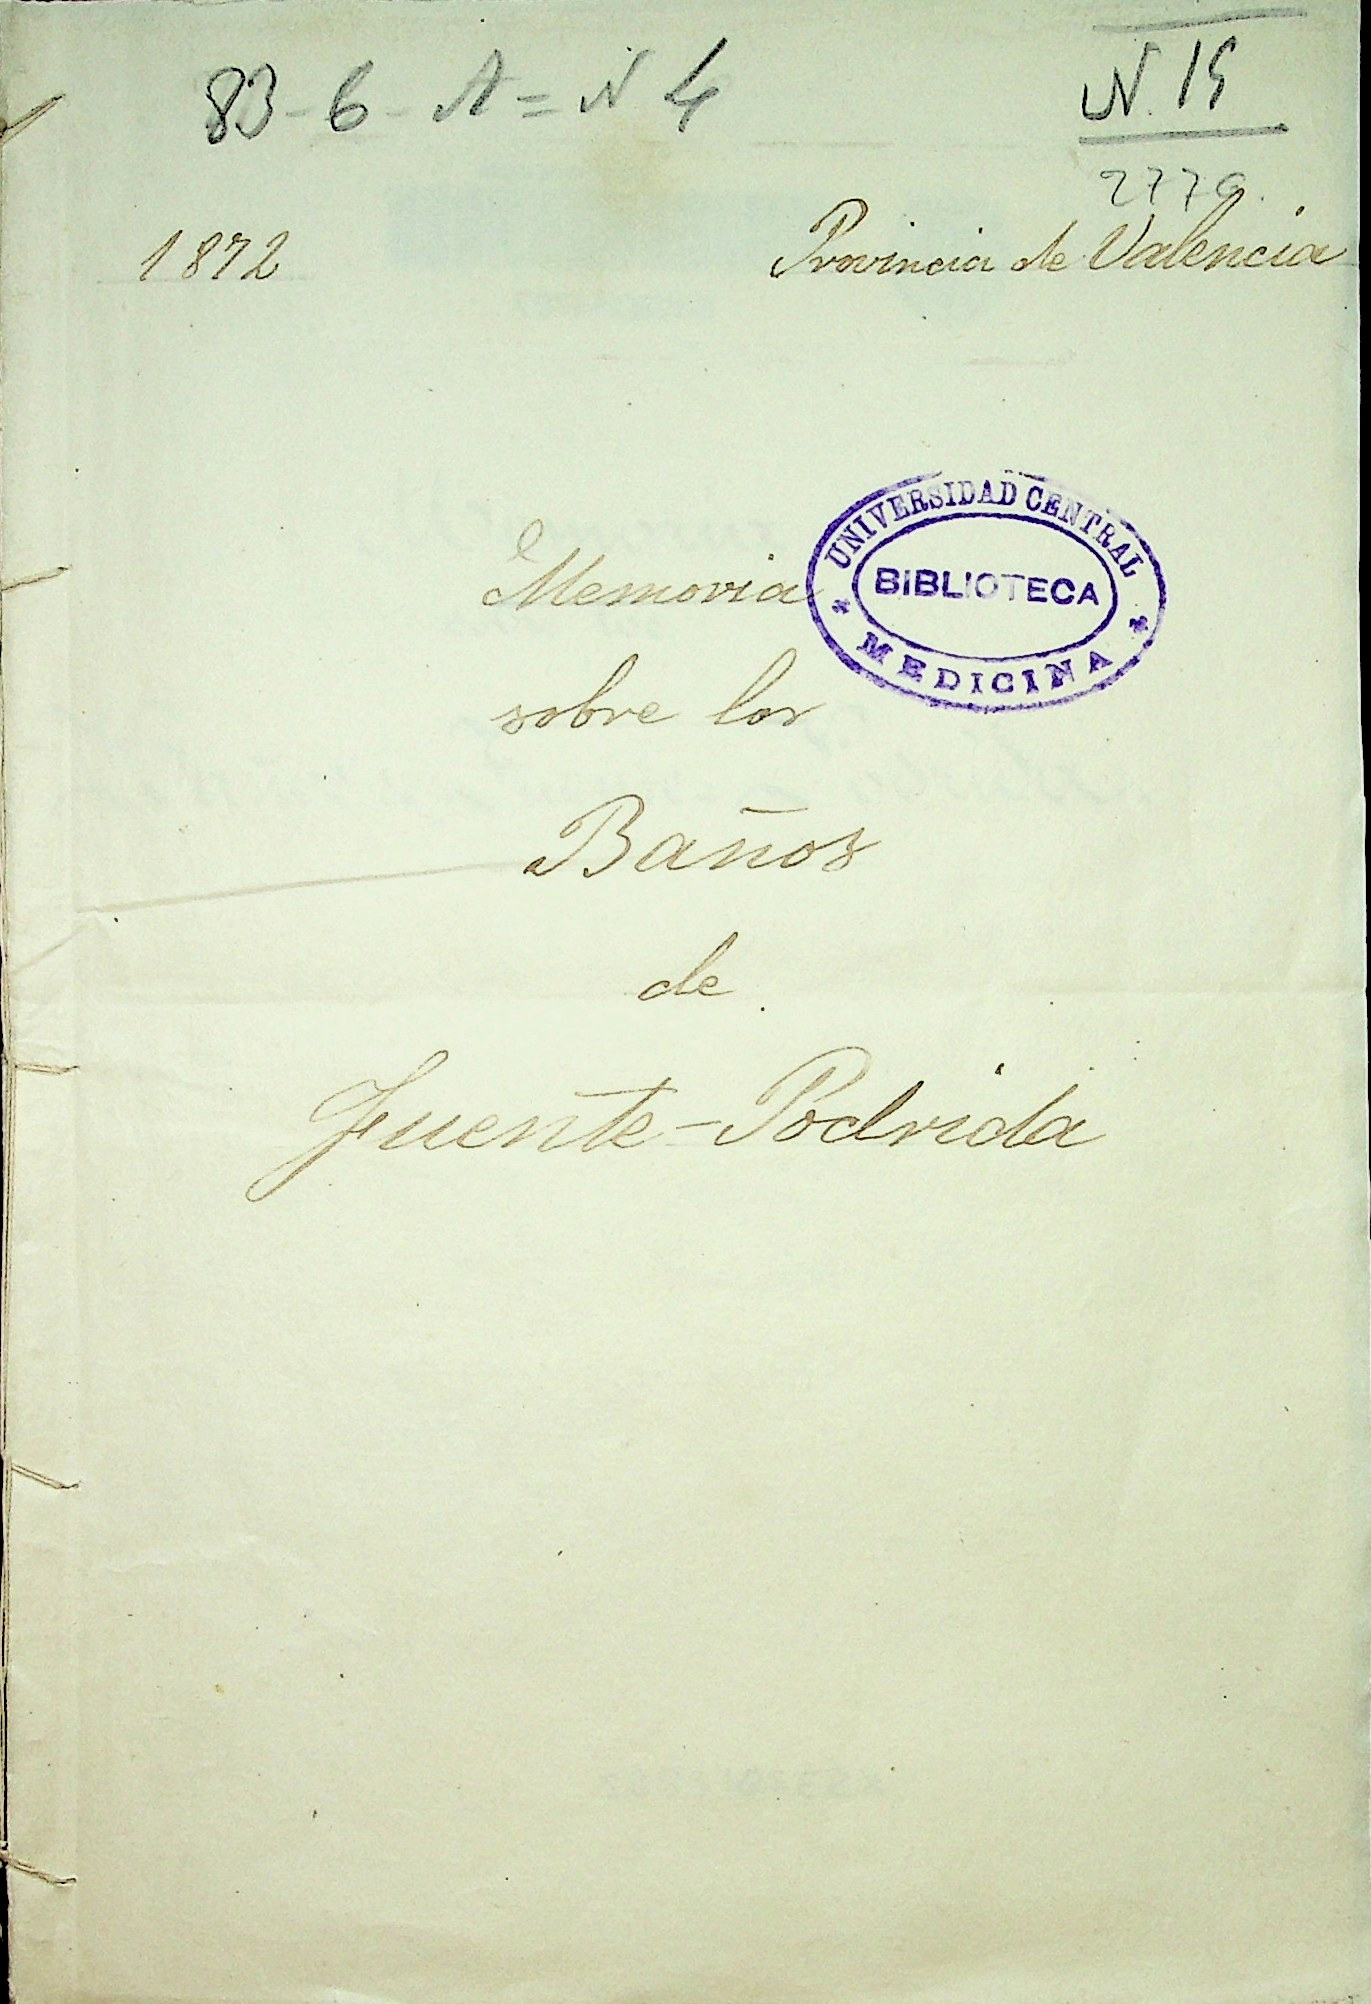 83-6-A=N 4
N. 15
2779.
1872
Provincia de Valencia
Memoria
UNIVERSIDAD CENTRAL
BIBLIOTECA
MEDICINA
sobre los
Baños
de
Fuente-Podrida